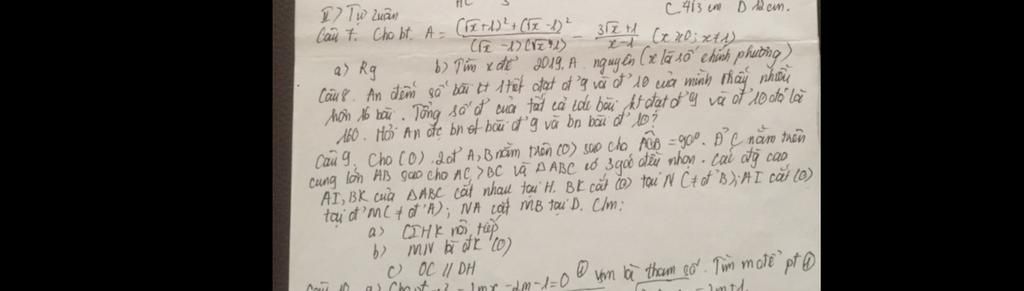 II) Tự luận
C 4√3 cm D 12 cm.
Câu 7. Cho bt. A = ((√x+1)² + (√x-1)²)/((√x-1)(√x+1)) - (3√x+1)/(x-1) (x ≥ 0; x ≠ 1)
a) Rg b) Tìm x để 2019.A nguyên (x là số chính phương)
Câu 8. An đếm số bài kt 1 tiết đạt đ' 9 và đ' 10 của mình thấy nhiều
hơn 16 bài. Tổng số đ' của tất cả các bài kt đạt đ' 9 và đ' 10 đó là
160. Hỏi An đc bn bài đ' 9 và bn bài đ' 10?
Câu 9. Cho (O). 2 đ' A, B nằm trên (O) sao cho AOB = 90°. Đ' C nằm trên
cung lớn AB sao cho AC > BC và ΔABC có 3 góc đều nhọn. Các đg cao
AI, BK của ΔABC cắt nhau tại H. BK cắt (O) tại N (≠ đ' B); AI cắt (O)
tại đ' M (≠ đ' A); NA cắt MB tại D. C/m:
a) CIHK nội tiếp
b) MN là đk (O)
c) OC // DH
- 2mx - 2m - 1 = 0 ① vm là tham số. Tìm m để pt ①